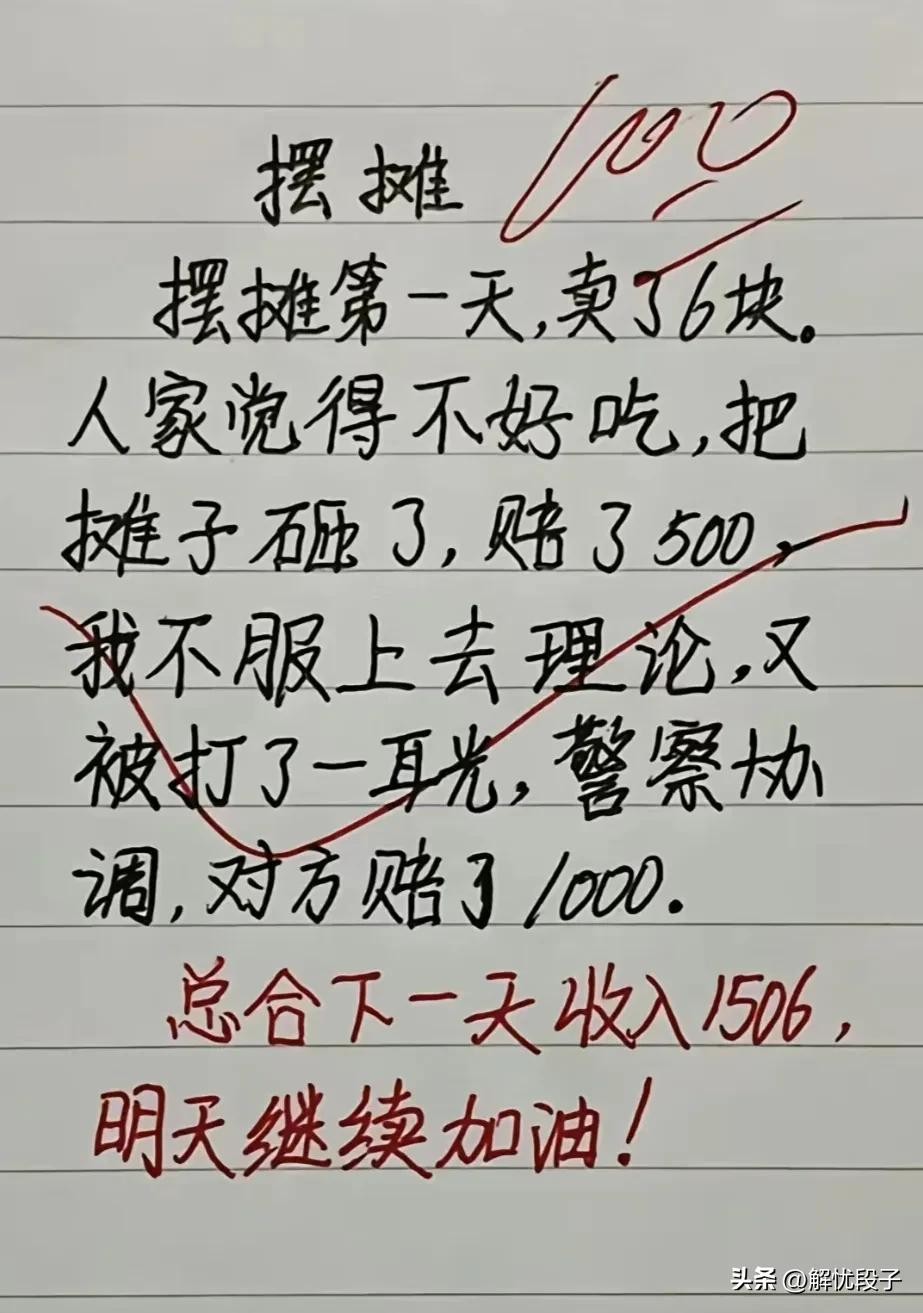 摆摊 100
摆摊第一天,卖了6块。
人家觉得不好吃,把
摊子砸了,赔了500,
我不服上去理论,又
被打了一耳光,警察协
调,对方赔了1000.
总合下一天收入1506,
明天继续加油!
头条 @解忧段子